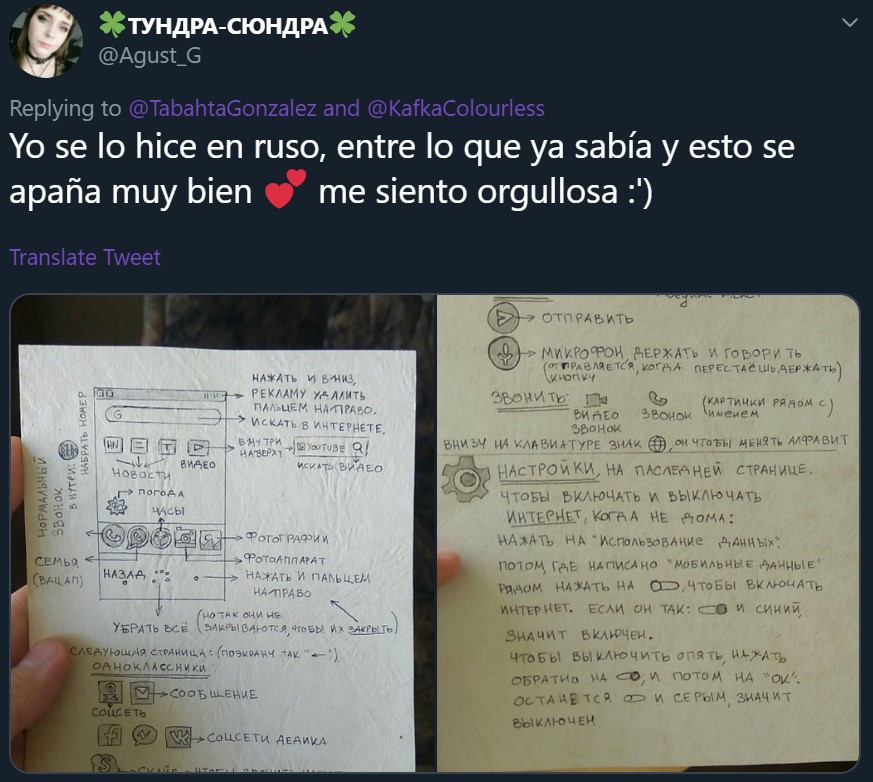 🍀ТУНДРА-СЮНДРА🍀
@Agust_G
Replying to @TabahtaGonzalez and @KafkaColourless
Yo se lo hice en ruso, entre lo que ya sabía y esto se
apaña muy bien 💕 me siento orgullosa :')
Translate Tweet
НАЖАТЬ И ВНИЗ,
РЕКЛАМУ УДАЛИТЬ
ПАЛЬЦЕМ НАПРАВО.
ИСКАТЬ В ИНТЕРНЕТЕ.
G
НАБРАТЬ НОМЕР
НОРМАЛЬНЫЙ
ЗВОНОК
ВНУТРИ:
ВНУТРИ
НАВЕРХУ
YOUTUBE
ИСКАТЬ ВИДЕО
ВИДЕО
НОВОСТИ
ПОГОДА
ЧАСЫ
ФОТОГРАФИИ
ФОТОАППАРАТ
СЕМЬЯ
(ВАЦАП)
НАЗАД
НАЖАТЬ И ПАЛЬЦЕМ
НАПРАВО
УБРАТЬ ВСЁ (НО ТАК ОНИ НЕ
ЗАКРЫВАЮТСЯ, ЧТОБЫ ИХ ЗАКРЫТЬ)
СЛЕДУЮЩАЯ СТРАНИЦА: (ПОЭКРАНУ ТАК "←")
ОДНОКЛАССНИКИ
СООБЩЕНИЕ
СОЦСЕТЬ
СОЦСЕТИ ДЕДИКА
ОТПРАВИТЬ
МИКРОФОН, ДЕРЖАТЬ И ГОВОРИТЬ
(ОТПРАВЛЯЕТСЯ, КОГДА ПЕРЕСТАЁШЬ ДЕРЖАТЬ)
КНОПКУ
ЗВОНИТЬ:
ВИДЕО
ЗВОНОК
ЗВОНОК
(КАРТИНКИ РЯДОМ С)
ИМЕНЕМ
ВНИЗУ НА КЛАВИАТУРЕ ЗНАК, ОН ЧТОБЫ МЕНЯТЬ АЛФАВИТ
НАСТРОЙКИ, НА ПАСЛЕДНЕЙ СТРАНИЦЕ.
ЧТОБЫ ВКЛЮЧАТЬ И ВЫКЛЮЧАТЬ
ИНТЕРНЕТ, КОГДА НЕ ДОМА:
НАЖАТЬ НА "ИСПОЛЬЗОВАНИЕ ДАННЫХ".
ПОТОМ, ГДЕ НАПИСАНО "МОБИЛЬНЫЕ ДАННЫЕ"
РЯДОМ НАЖАТЬ НА, ЧТОБЫ ВКЛЮЧАТЬ
ИНТЕРНЕТ. ЕСЛИ ОН ТАК: И СИНИЙ,
ЗНАЧИТ ВКЛЮЧЕН.
ЧТОБЫ ВЫКЛЮЧИТЬ ОПЯТЬ, НАЖАТЬ
ОБРАТНО НА, И ПОТОМ НА "ОК".
ОСТАНЕТСЯ И СЕРЫМ, ЗНАЧИТ
ВЫКЛЮЧЕН